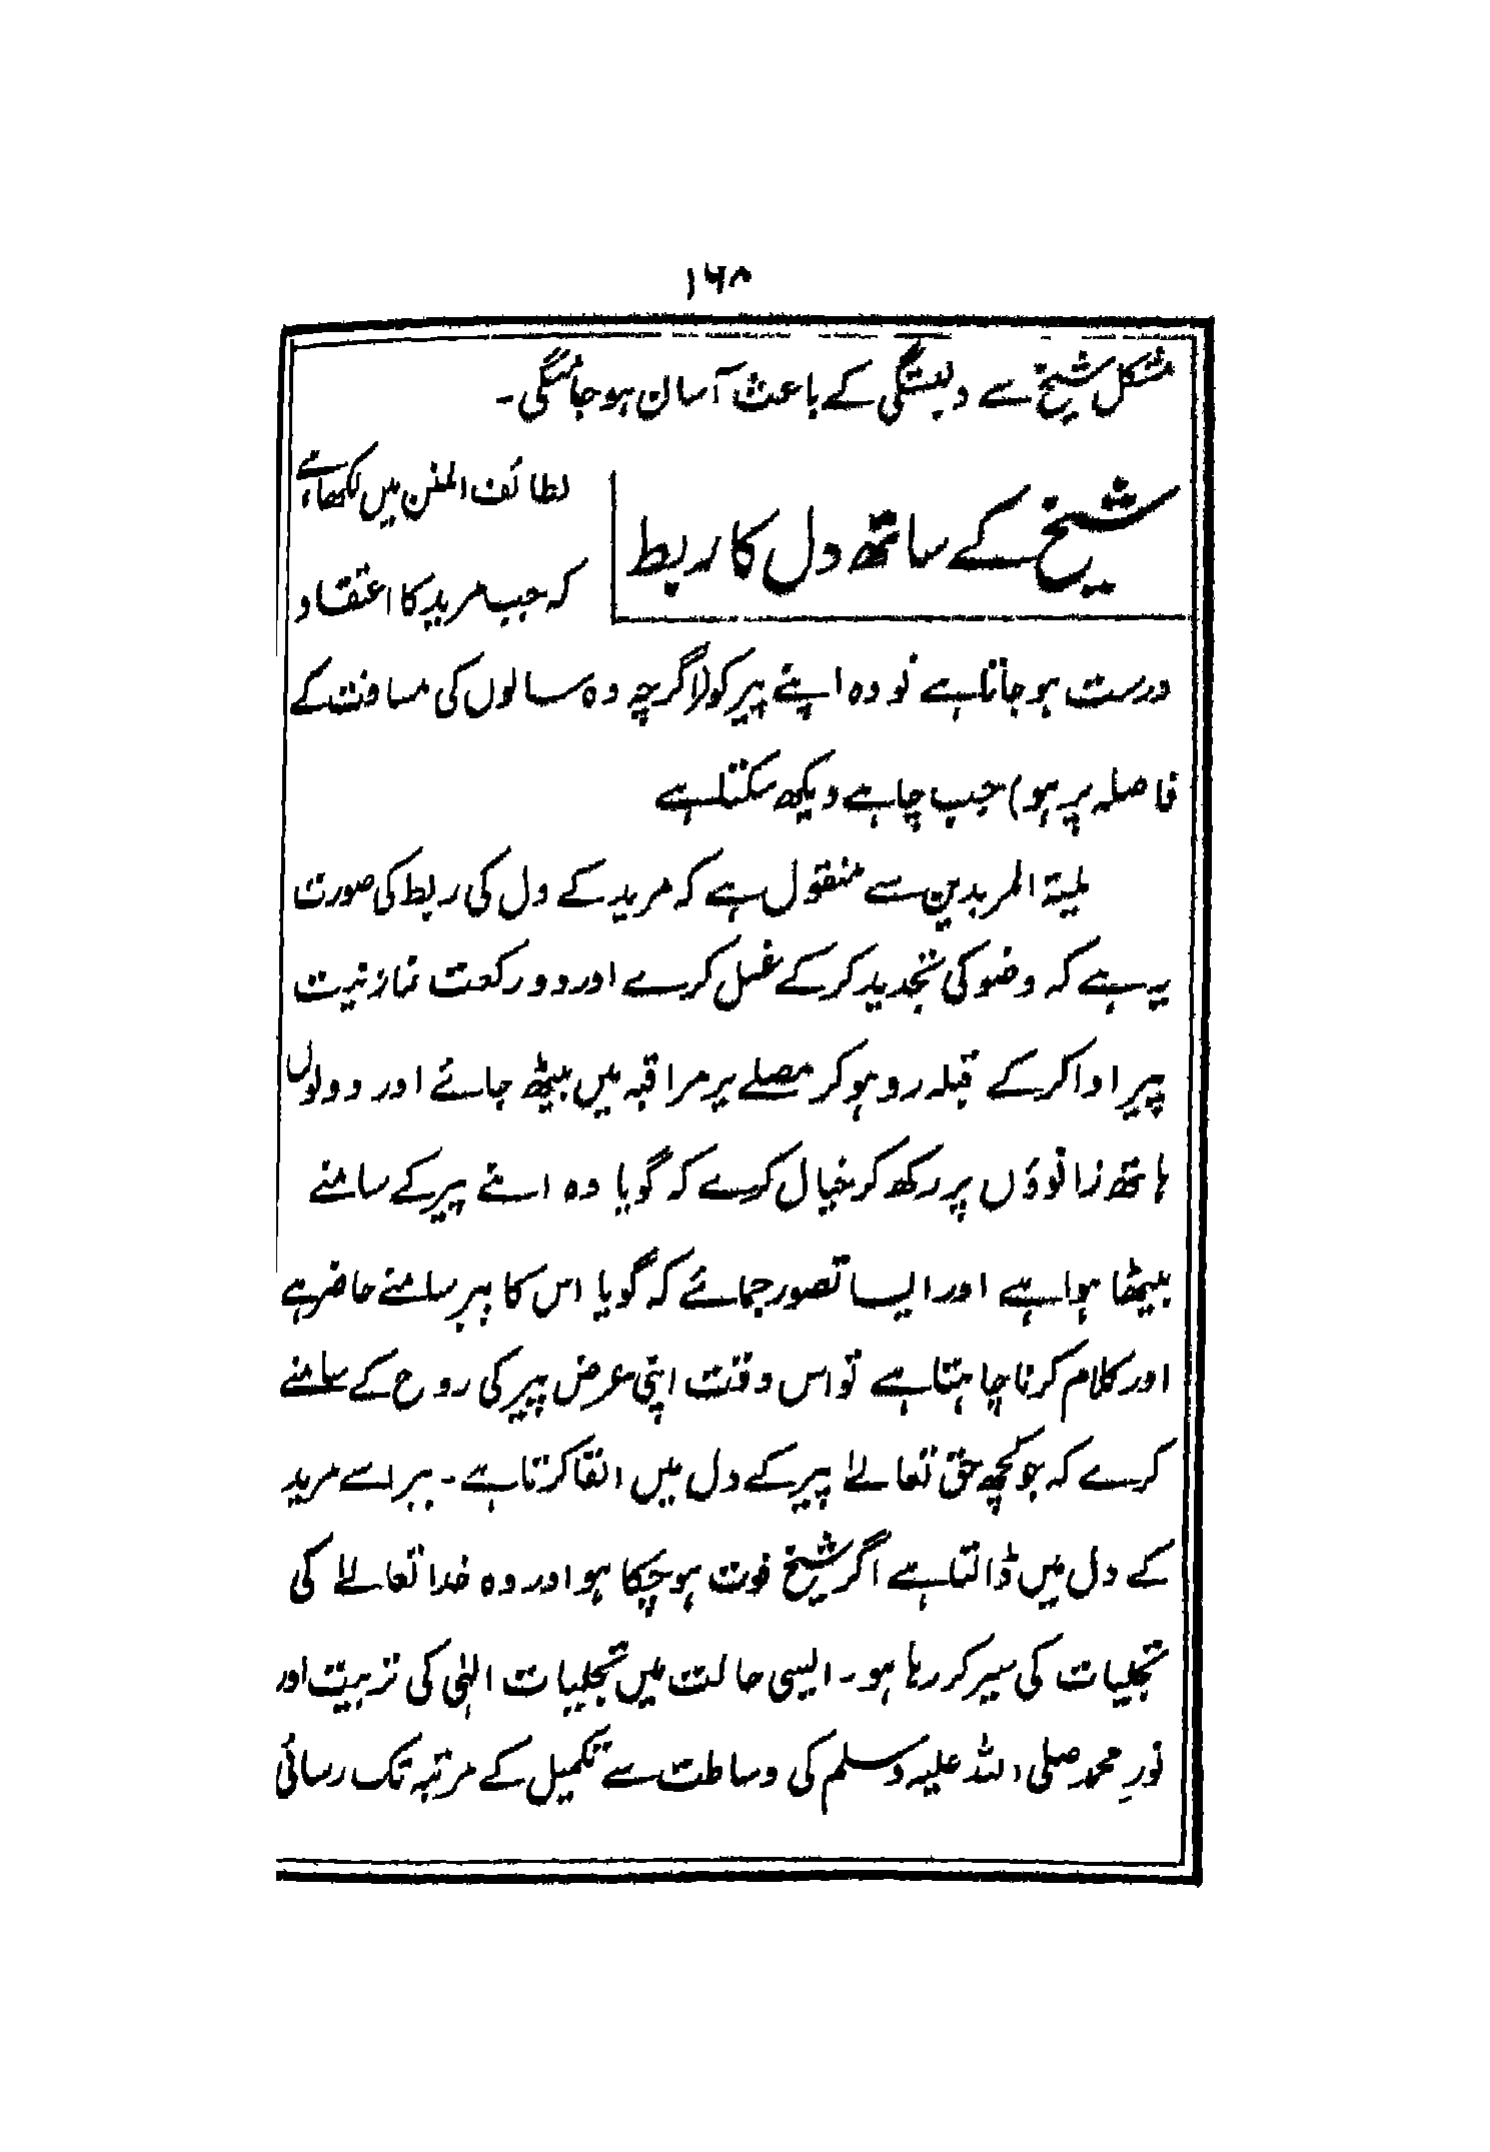 ۱۶۸
مشکل شیخ سے دلبستگی کے باعث آسان ہوجائیگی۔
شیخ کے ساتھ دل کا ربط
لطائف المنن میں لکھا ہے
کہ جب مرید کا اعتقاد
درست ہو جاتا ہے تو وہ اپنے پیر کو (اگرچہ وہ سالوں کی مسافت کے
فاصلہ پر ہو) جب چاہے دیکھ سکتا ہے
المریدین سے منقول ہے کہ مرید کے دل کی ربط کی صورت
یہ ہے کہ وضو کی تجدید کر کے غسل کرے اور دو رکعت نماز نیت
پیر ادا کر کے قبلہ رو ہو کر مصلے پر مراقبہ میں بیٹھ جائے اور دونوں
ہاتھ زانوؤں پر رکھ کر خیال کرے کہ گویا وہ اپنے پیر کے سامنے
بیٹھا ہوا ہے اور ایسا تصور جمائے کہ گویا اس کا پیر سامنے حاضر ہے
اور کلام کرنا چاہتا ہے تو اس وقت اپنی عرض پیر کی روح کے سامنے
کرے کہ جو کچھ حق تعالےٰ پیر کے دل میں القا کرتا ہے۔ پیر اسے مرید
کے دل میں ڈالتا ہے اگر شیخ فوت ہو چکا ہو اور وہ خدا تعالےٰ کی
تجلیات کی سیر کر رہا ہو۔ ایسی حالت میں تجلیات الہٰی کی تربیت اور
نورِ محمد صلی اللہ علیہ وسلم کی وساطت سے تکمیل کے مرتبہ تک رسائی